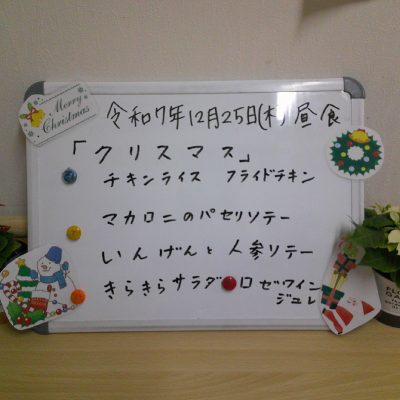 Merry
Christmas
令和7年12月25日(木)昼食
「クリスマス」
チキンライス フライドチキン
マカロニのパセリソテー
いんげんと人参ソテー
きらきらサラダ ロゼワイン
ジュレ